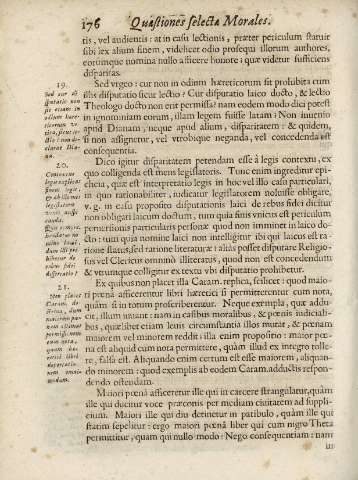 176 Quæstiones selectæ Morales.
tis, vel audientis: at in casu lectionis, præter periculum statuit
sibi lex alium finem, videlicet odio prosequi illorum authores,
eorumque nomina nullo afficere honore: quæ videtur sufficiens
disparitas.
19.
Sed urgeo: cur non in odium hæreticorum sit prohibita cum
illis disputatio sicut lectio? Cur disputatio laico docto, & lectio
Theologo docto non erit permissa? nam eodem modo dici potest
in ignominiam eorum, illam legem fuisse latam? Non invenio
apud Dianam, neque apud alium, disparitatem: & quidem,
si non assignetur, vel utrobique neganda, vel concedenda est
consequentia.
20.
Dico igitur disparitatem petendam esse à legis contextu, ex
quo colligenda est mens legislatoris. Tunc enim ingreditur epi-
cheia, quæ est interpretatio legis in hoc vel illo casu particulari,
in quo rationabiliter, iudicatur legislatorem noluisse obligare,
v. g. in casu proposito disputationis laici de rebus fidei dicitur
non obligari laicum doctum, tum quia finis unicus est periculum
perversionis particularis personæ quod non imminet in laico do-
cto: tum quia nomine laici non intelligitur ibi qui laicus est ra-
tione status, sed ratione literaturæ: alias posset disputare Religio-
sus vel Clericus omnino illiteratus, quod non est concedendum
& utrumque colligitur ex textu ubi disputatio prohibetur.
21.
Ex quibus non placet illa Caram. replica, scilicet: quod maio-
ri pœna afficerentur libri hæretici si permitterentur cum nota,
quàm si in totum proscriberentur. Neque exempla, quæ addu-
cit, illum iuvant: nam in casibus moralibus, & pœnis indiciali-
bus, quælibet etiam levis circumstantia illos mutat, & pœnam
maiorem vel minorem reddit: illa enim propositio: maior pœ-
na est aliquid cum nota permittere, quàm illud ex integro tolle-
re, falsa est. Aliquando enim certum est esse maiorem, aliquan-
do minorem: quod exemplis ab eodem Caram. adductis respon-
dendo ostendam.
Maiori pœnâ afficeretur ille qui in carcere strangulatur, quàm
ille qui ducitur voce præconis per mediam civitatem ad suppli-
cium. Maiori ille qui diu detinetur in patibulo, quàm ille qui
statim sepelitur: ergo maiori pœnâ liber qui cum nigro Theta
permittitur, quàm qui nullo modo: Nego consequentiam: nam
in